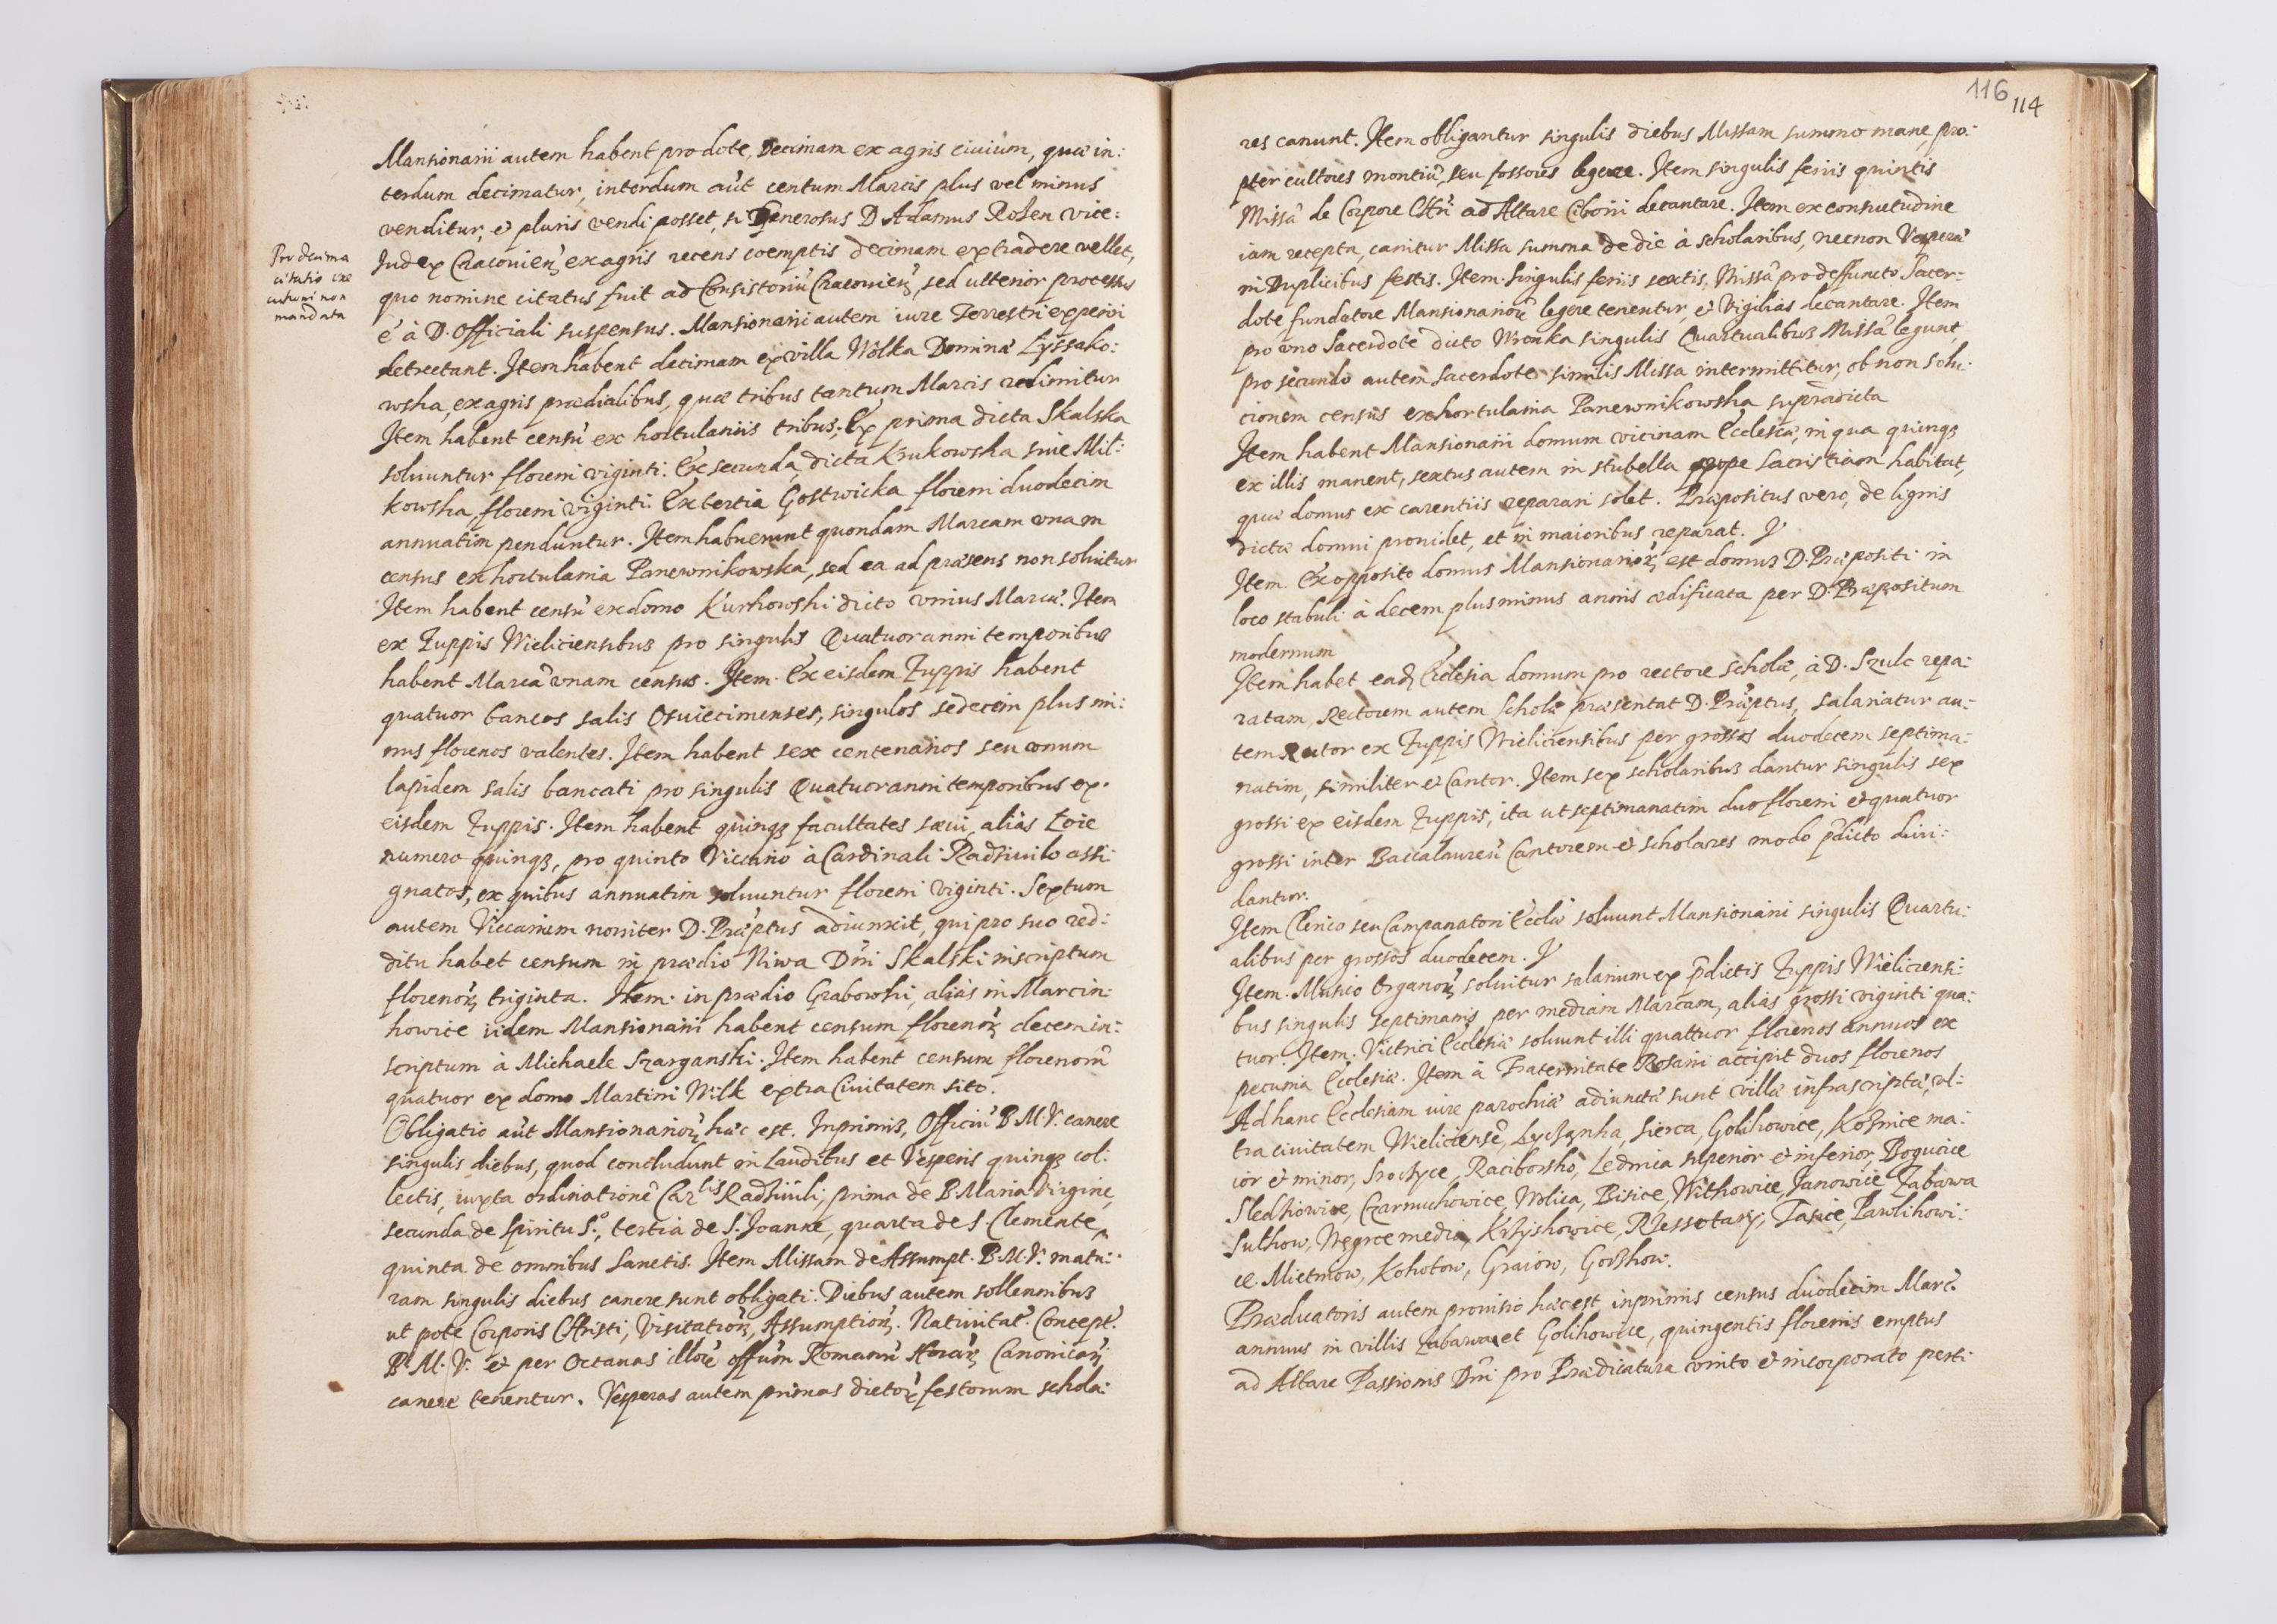 Mansionarii autem habent pro dote, Decimam ex agris ciuium, quæ in:
terdum decimatur, interdum aut̃ centum Marcis plus vel minus
venditur, et pluris vendi posset, si Generosus D Adamus Rosen vice:
Judex Cracouien̄ ex agris recens coemptis decimam extradere vellet,
Pro decima
citatio exe
cutioni non
mandata
quo nomine citatus fuit ad Consistoriũ Cracouien̄, sed ulterior processus
ẽ à D. Officiali suspensus. Mansionarii autem iure Terrestri experiri
detrectant. Item habent decimam ex villa Wolka Dominæ Lyssako:
wska, ex agris prædialibus, quæ tribus tantum Marcis redimitur
Item habent censũ ex hortulaniis tribus; Ex prima dicta Skalska
soluuntur floreni viginti. Ex secunda, dicta Krukowska siue Mil:
kowska, floreni viginti. Ex tertia Gostwicka floreni duodecim
annuatim penduntur. Item habuerunt quondam Marcam vnam
census ex hortulania Panewnikowska, sed ea ad præsens non soluitur
Item habent censũ ex domo Kurkowski dicto vnius Marcæ. Item
ex Zuppis Wieliciensibus pro singulis Quatuor anni temporibus
habent Marcã vnam census. Item. Ex eisdem Zuppis habent
quatuor bancos salis Osuiecimenses, singulos sedecim plus mi:
nus florenos valentes. Item habent sex centenarios seu vnum
lapidem salis bancati pro singulis Quatuor anni temporibus ex
eisdem Zuppis. Item habent quinqȝ facultates sævi, aliàs Łoie
numero quinqȝ, pro quinto Viccario à Cardinali Radziuilo assi
gnatos, ex quibus annuatim soluuntur floreni viginti. Sextum
autem Viccarium nouiter D. Præptus adiunxit, qui pro suo red:
ditu habet censum in prædio Niwa Dñi Skalski inscriptum
florenoꝝ triginta. Item. in prædio Grabowski, aliàs in Marcin:
kowice iidem Mansionarii habent censum florenoꝝ decem in:
scriptum à Michaele Szarganski. Item habent censum florenorũ
quatuor ex domo Martini Wilk extra Ciuitatem sito.
Obligatio aut̃ Mansionarioꝝ hæc est. Inprimis, Officiũ B M V. canere
singulis diebus, quod concludunt in Laudibus et Vesperis quinqȝ col:
lectis, iuxta ordinationẽ Carlis Radziuili, prima de B. Maria Virgine,
secunda de Spiritu S.º, tertia de S. Joanne, quarta de S Clemente,
quinta de omnibus Sanctis. Item Missam de Assumpt. B. M. V. matu:
ram singulis diebus canere sunt obligati. Diebus autem sollennibus
ut pote Corporis Christi, Visitationꝭ, Assumptionꝭ. Natiuitat̃. Concept̃.
B. M. V. et per Octauas illorũ offũm Romanũ Horaꝝ Canonicaꝝ
canere tenentur. Vesperas autem primas dictoꝝ festorum schola:
116
114
res canunt. Item obligantur singulis diebus Missam summo mane, pro:
pter cultores montiũ, seu fossores legere. Item singulis feriis quintis
Missã de Corpore Chri ad Altare Ciborii decantare. Item ex consuetudine
iam recepta, canitur Missa summa de die à scholaribus, necnon Vesperæ
in Duplicibus festis. Item. singulis feriis sextis, Missã pro deffuncto Sacer:
dote fundatore Mansionariorũ legere tenentur, et Vigilias decantare. Item
pro vno Sacerdote dicto Wronka singulis Quartualibus Missã legunt,
pro secundo autem Sacerdote similis Missa intermittitur, ob non solu:
cionem census ex hortulania Panewnikowska supradicta
Item habent Mansionarii domum vicinam Ecclesiæ, in qua quinqȝ
ex illis manent, sextus autem in stubella prope Sacristiam habitat,
quæ domus ex carentiis reparari solet. Præpositus vero, de lignis
dictæ domui prouidet, et in maioribus reparat.
Item. Ex opposito domus Mansionarioꝝ est domus D. Præpositi in
loco stabuli à decem plus minus annis ædificata per D. Præpositum
modernum
Item habet ead̃ Ecclesia domum pro rectore scholæ, à D. Szulc repa:
ratam, Rectorem autem scholæ præsentat D. Præptus, salariatur au:
tem Rector ex Zuppis Wieliciensibus per grossos duodecem septima:
natim, similiter et Cantor. Item sex scholaribus dantur singulis sex
grossi ex eisdem Zuppis, ita ut septimanatim duo floreni et quatuor
grossi inter Baccalaureũ Cantorem et scholares modo p̃dicto diui:
dantur.
Item Clerico seu Campanatori Eccliæ soluunt Mansionarii singulis Quartu:
alibus per grossos duodecem.
Item. Musico Organoꝝ soluitur salarium ex p̃dictis Zuppis Wieliciensi:
bus singulis septimanis per mediam Marcam, aliàs grossi viginti qua:
tuor. Item. Vitrici Ecclesiæ soluunt illi quattuor florenos annuos ex
pecunia Ecclesiæ. Item à Fraternitate Rosarii accipit duos florenos
Ad hanc Ecclesiam iure parochiæ adiunctæ sunt villæ infrascriptæ, vl:
tra ciuitatem Wieliciensẽ, Lyczanka, Sierca, Golikowice, Kozmice ma:
ior et minor, Sroczyce, Raciborsko, Lednica superior et inferior, Bogucice
Sledkowice, Czarnuchowice, Wolica, Bisice, Witkowice, Janowice Zabawa
Sulkow, Węgrce media, Krzyskowice, Rzessotary, Tasice, Pawlikowi:
ce. Mietniow, Kokotow, Graiow, Gorzkow.
Prædicatoris autem prouisio hæc est, inprimis census duodecim Marc̃.
annuus in villis Zabawa et Golikowice, quingentis florenis emptus
ad Altare Passionis Dñi pro Prædicatura vnito et incorporato perti